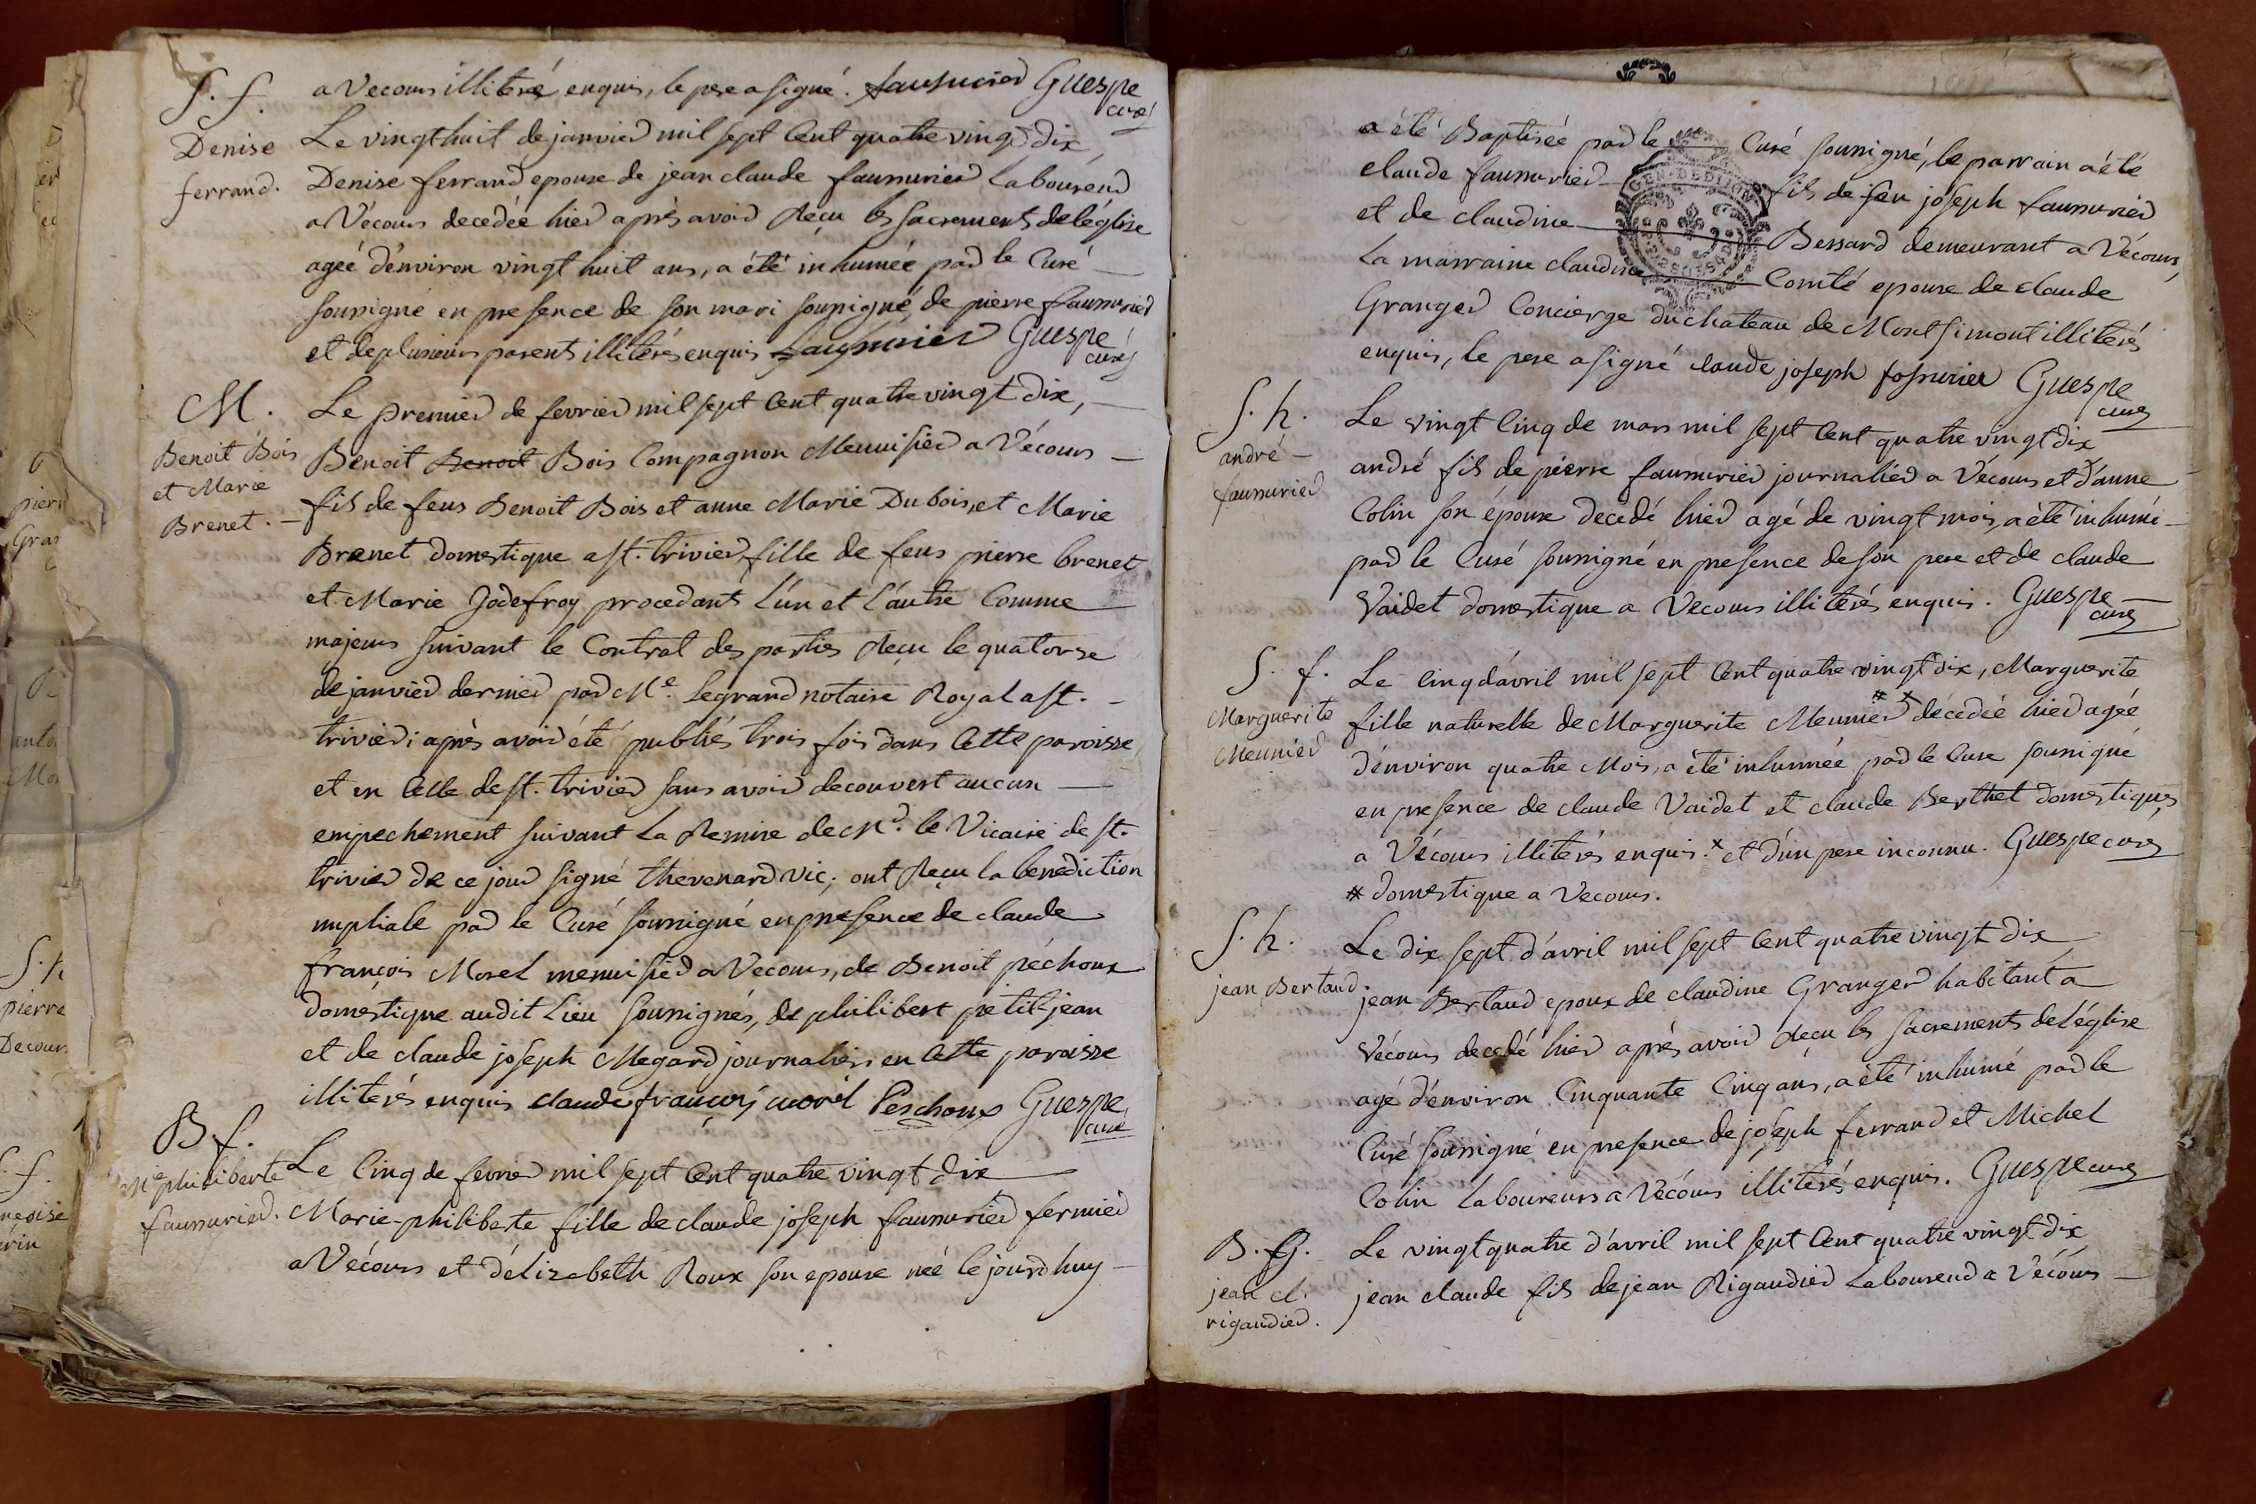 S. f.
Denise
ferrand.
a Vecours illiteré enquis, le pere a signé. faussurier Guespe
curé
Le vingt huit de janvier mil sept cent quatre vingt dix,
Denise ferrand epouse de jean claude faussurier Laboureur
a Vécours decedée hier après avoir reçu les sacrements de léglise
agée d'environ vingt huit ans, a été inhumée par le Curé
soussigné en presence de son mari soussigné, de pierre faussurier
et de plusieurs parents illitérés enquis faussurier Guespe
curé
M.
Benoit Bois
et Marie
Brenet.
Le premier de fevrier mil sept cent quatre vingt dix,
Benoit Benoit Bois Compagnon Menuisier a Vécours
fils de feus Benoit Bois et anne Marie Dubois, et Marie
Brenet domestique a st. trivier fille de feus pierre brenet
et Marie Jodefroy procedants l'un et l'autre Comme
majeurs suivant le Contrat des parties reçu le quatorze
de janvier dernier par Me. Legrand notaire Royal a st.
trivier; après avoir été publiés trois fois dans cette paroisse
et en celle de st. trivier sans avoir decouvert aucun
empechement suivant la Remise de Mr. le Vicaire de st.
trivier de ce jour signé thevenard vic; ont reçu la benediction
nuptiale par le Curé soussigné en presence de claude
françois Morel menuisier a Vecours, de Benoit péchoux
domestique audit Lieu soussignés, de philibert petitjean
et de claude joseph Megard journaliers en cette paroisse
illitérés enquis claude françois morel Peschoux Guespe
curé
B f.
Me philiberte
faussurier.
Le cinq de fevrier mil sept cent quatre vingt dix
Marie-philiberte fille de claude joseph faussurier fermier
a Vécours et d'élizabeth Roux son epouse née le jourdhuy
a été Baptisée par le Curé soussigné, le parrain a été
claude faussurier fils de feu joseph faussurier
et de claudine Bessard demeurant a Vécours,
La marraine claudine Comté epouse de claude
Granger Concierge du chateau de Montsimont illiterés
enquis, le pere a signé claude joseph fossurier Guespe
curé
S. h.
andré
faussurier
Le vingt cinq de mars mil sept cent quatre vingt dix
andré fils de pierre faussurier journalier a Vécours et d'anne
Colin son épouse decedé hier agé de vingt mois, a été inhumé
par le Curé soussigné en presence de son pere et de claude
Vaidet domestique a Vecours illiterés enquis. Guespe
curé
S. f.
Marguerite
Meunier
Le cinq d'avril mil sept cent quatre vingt dix, Marguerite
fille naturelle de Marguerite Meunier # x décédée hier agée
d'environ quatre Mois, a été inhumée par le Curé soussigné
en presence de claude Vaidet et claude Berthet domestiques
a Vécours illiterés enquis. x et d'un pere inconnu. Guespe curé
# domestique a Vecours.
S. h.
jean Bertaud.
Le dix sept d'avril mil sept cent quatre vingt dix
jean Bertaud epoux de claudine Granger habitant a
Vécours decedé hier après avoir reçu les sacrements de l'église
agé d'environ Cinquante Cinq ans, a été inhumé par le
Curé soussigné en presence de joseph ferrand et Michel
Colin Laboureurs a Vécours illiterés enquis. Guespe curé
B. G.
jean cl.
rigaudier.
Le vingt quatre d'avril mil sept cent quatre vingt dix
jean claude fils de jean Rigaudier Laboureur a Vécours